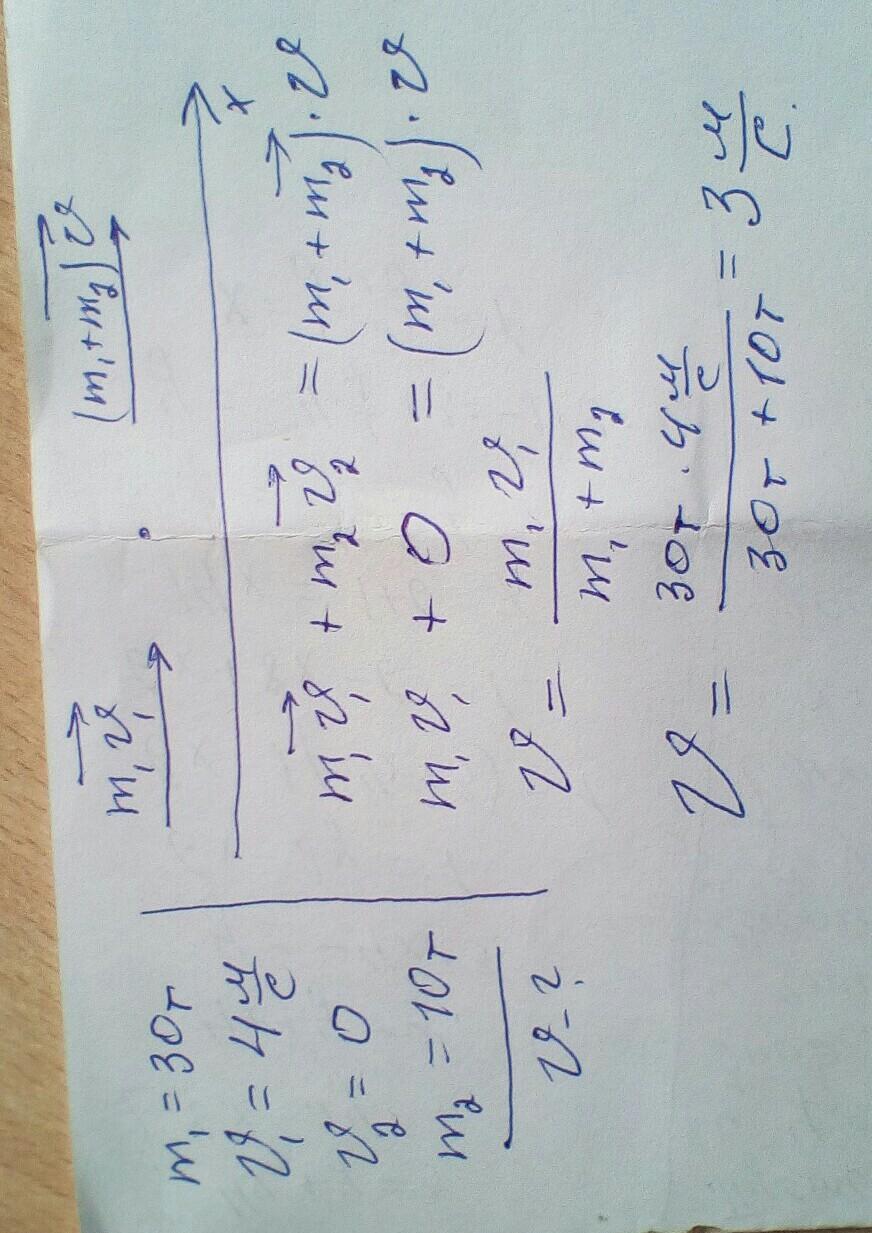 m₁ = 30т
υ₁ = 4 м/с
υ₂ = 0
m₂ = 10т
υ - ?
m₁υ⃗₁
(m₁ + m₂)υ⃗
x
m₁υ⃗₁ + m₂υ⃗₂ = (m₁ + m₂)⃗ · υ
m₁υ₁ + 0 = (m₁ + m₂) · υ
υ = m₁υ₁ / m₁ + m₂
υ = 30т · 4 м/с / 30т + 10т = 3 м/с.